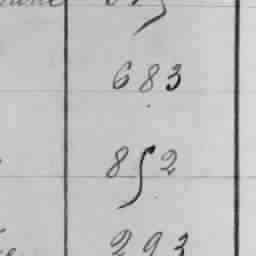 683
852
293